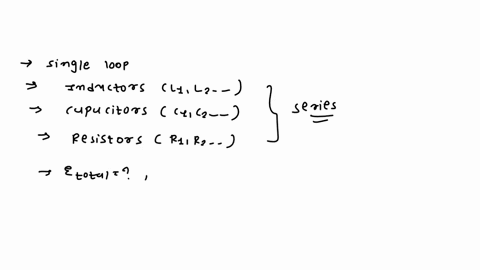 → single loop
→ Inductors (L1, L2 --)
→ cupucitors ( C1, C2 --)
→ Resistors ( R1, R2 --)
series
→ Etotal = ? ,